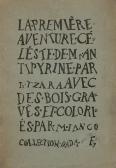 LA PREMIÈRE
AVENTURE CÉ
LESTE DE Mr AN
TYPYRINE PAR
T. TZARA AVEC
DES BOIS GRAV
ÉS ET COLORI
ÉS PAR M. JANCO
COLLECTION DADA